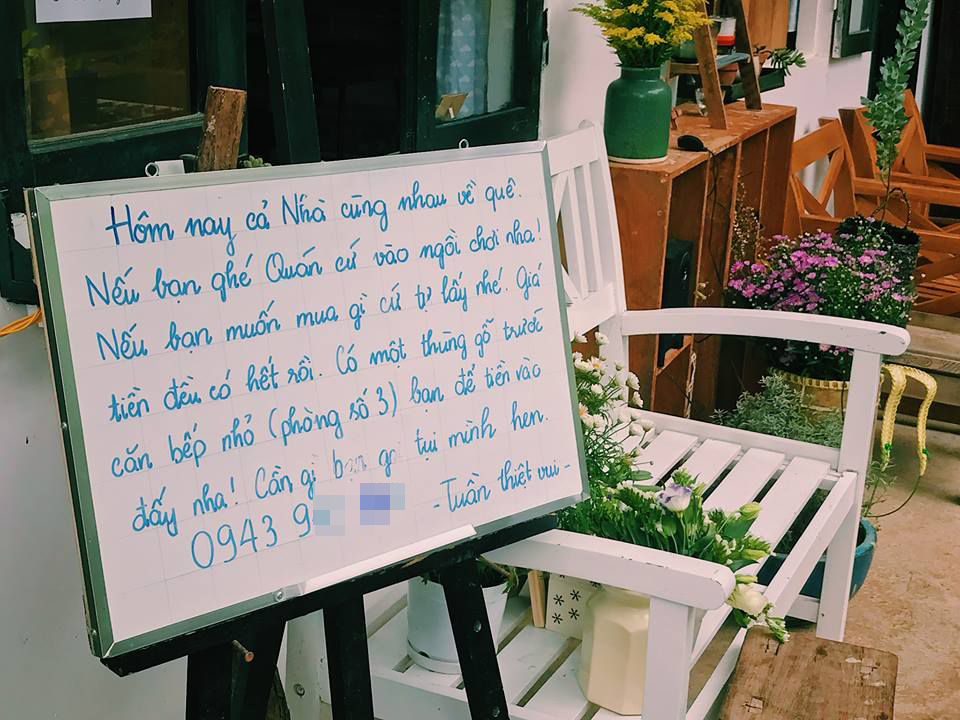 Hôm nay cả Nhà cùng nhau về quê.
Nếu bạn ghé Quán cứ vào ngồi chơi nha!
Nếu bạn muốn mua gì cứ tự lấy nhé. Giá
tiền đều có hết rồi. Có một thùng gỗ trước
căn bếp nhỏ (phòng số 3) bạn để tiền vào
đấy nha! Cần gì bạn gọi tụi mình hen.
0943 9
- Tuần thiệt vui -